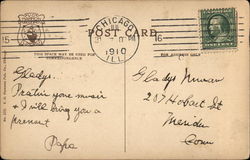 CHICAGO
1910
ILL.
15
15
POST CARD
THIS SPACE MAY BE USED FOR
CORRESPONDENCE
FOR ADDRESS ONLY
Gladys.
Pratice your music
& I will bring you a
present
Papa
Gladys
287 Hobart St
Meriden
Conn